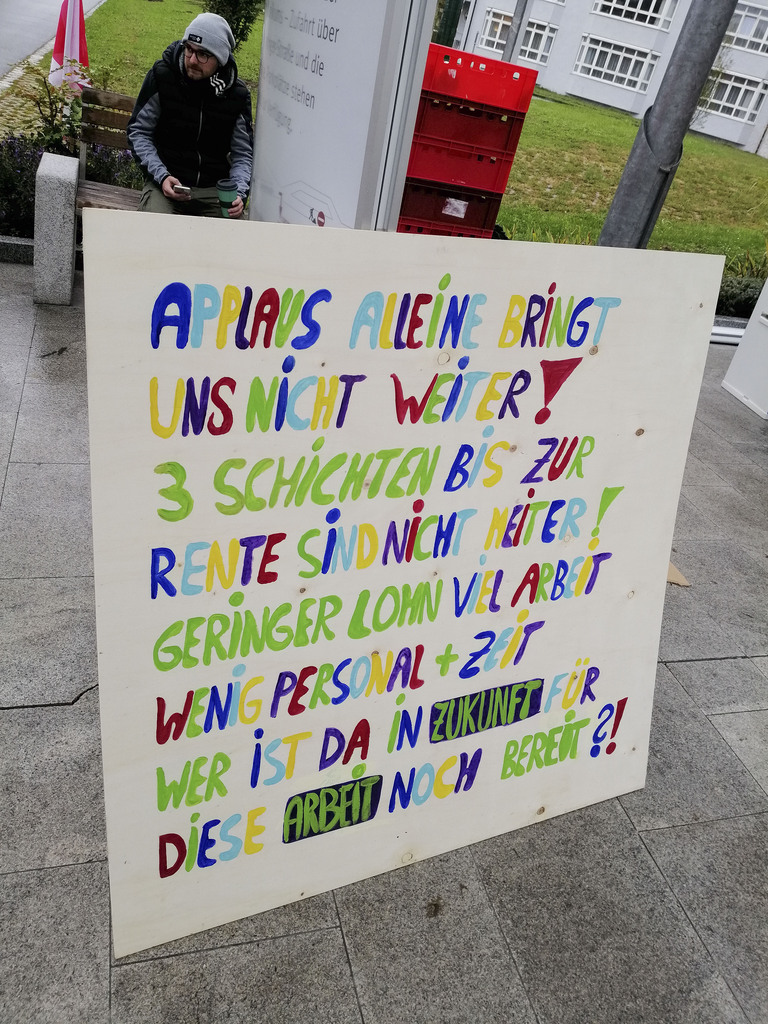 – Zufahrt über
Straße und die
stehen
APPLAUS ALLEINE BRINGT
UNS NICHT WEITER!
3 SCHICHTEN BIS ZUR
RENTE SIND NICHT HEITER!
GERINGER LOHN VIEL ARBEIT
WENIG PERSONAL + ZEIT
WER IST DA IN ZUKUNFT FÜR
DIESE ARBEIT NOCH BEREIT?!